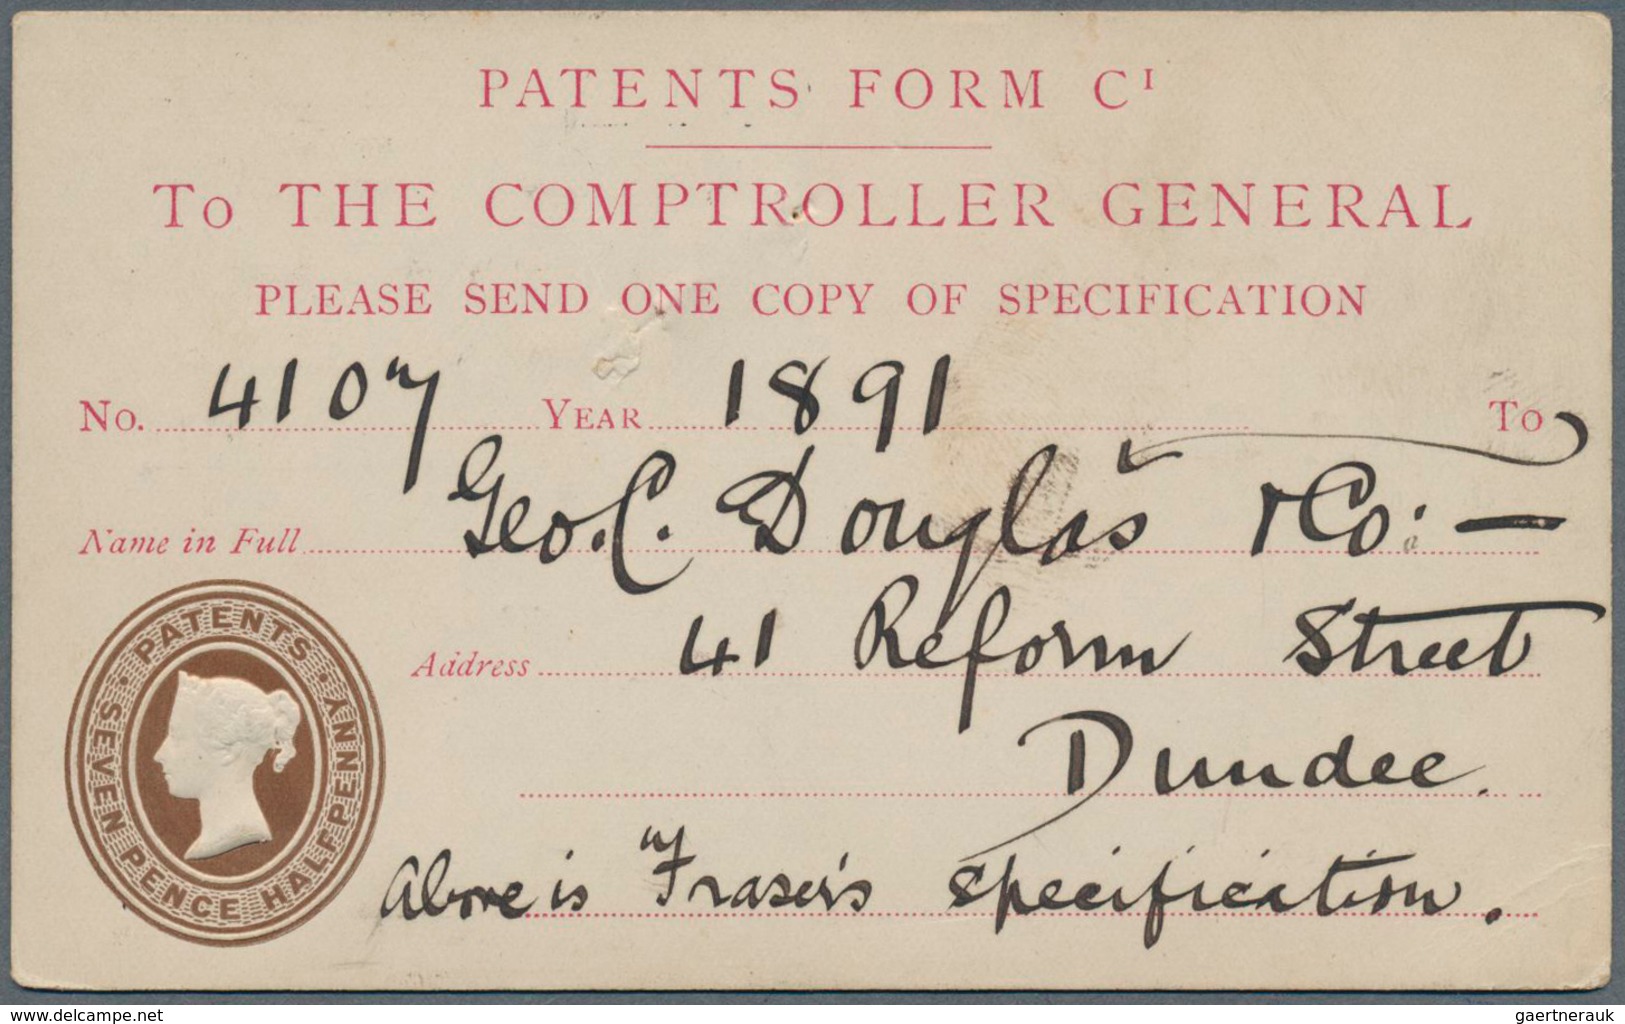 PATENTS FORM C¹
To THE COMPTROLLER GENERAL
PLEASE SEND ONE COPY OF SPECIFICATION
No. 4107 YEAR 1891 To
Name in Full Geo. C. Douglas & Co: —
Address 41 Reform Street
Dundee.
Above is Fraser's specification.
PATENTS
SEVEN PENCE HALFPENNY
www.delcampe.net
gaertnerauk